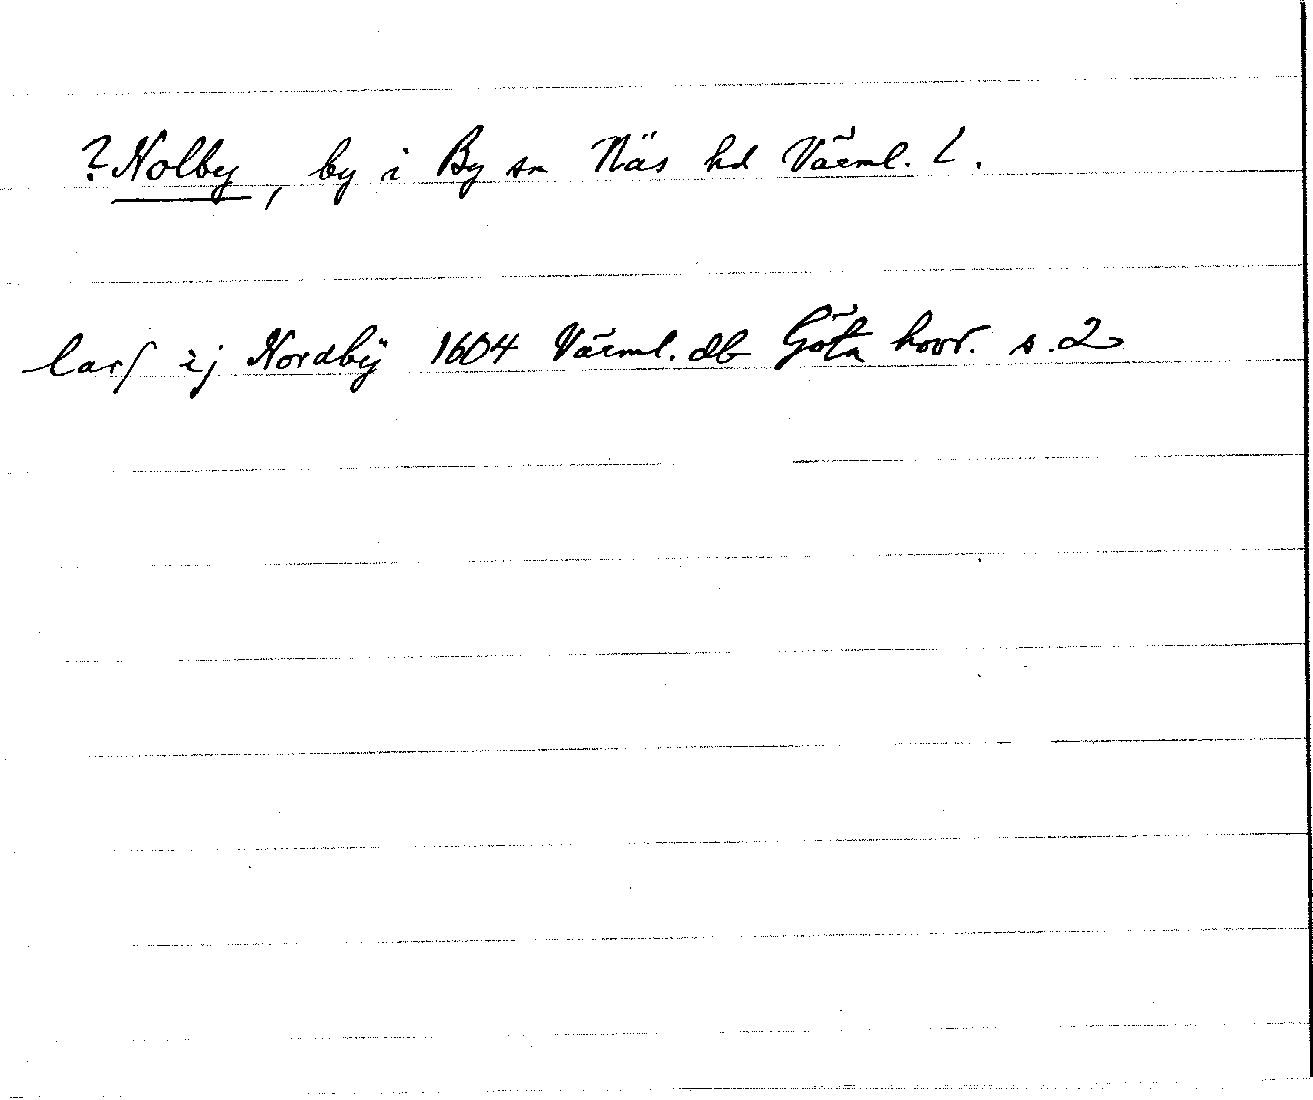 ? Nolby, by i By sn Näs hd Värml. l.
larſ ij Nordbÿ 1604 Värml. db Göta hovr. s. 2